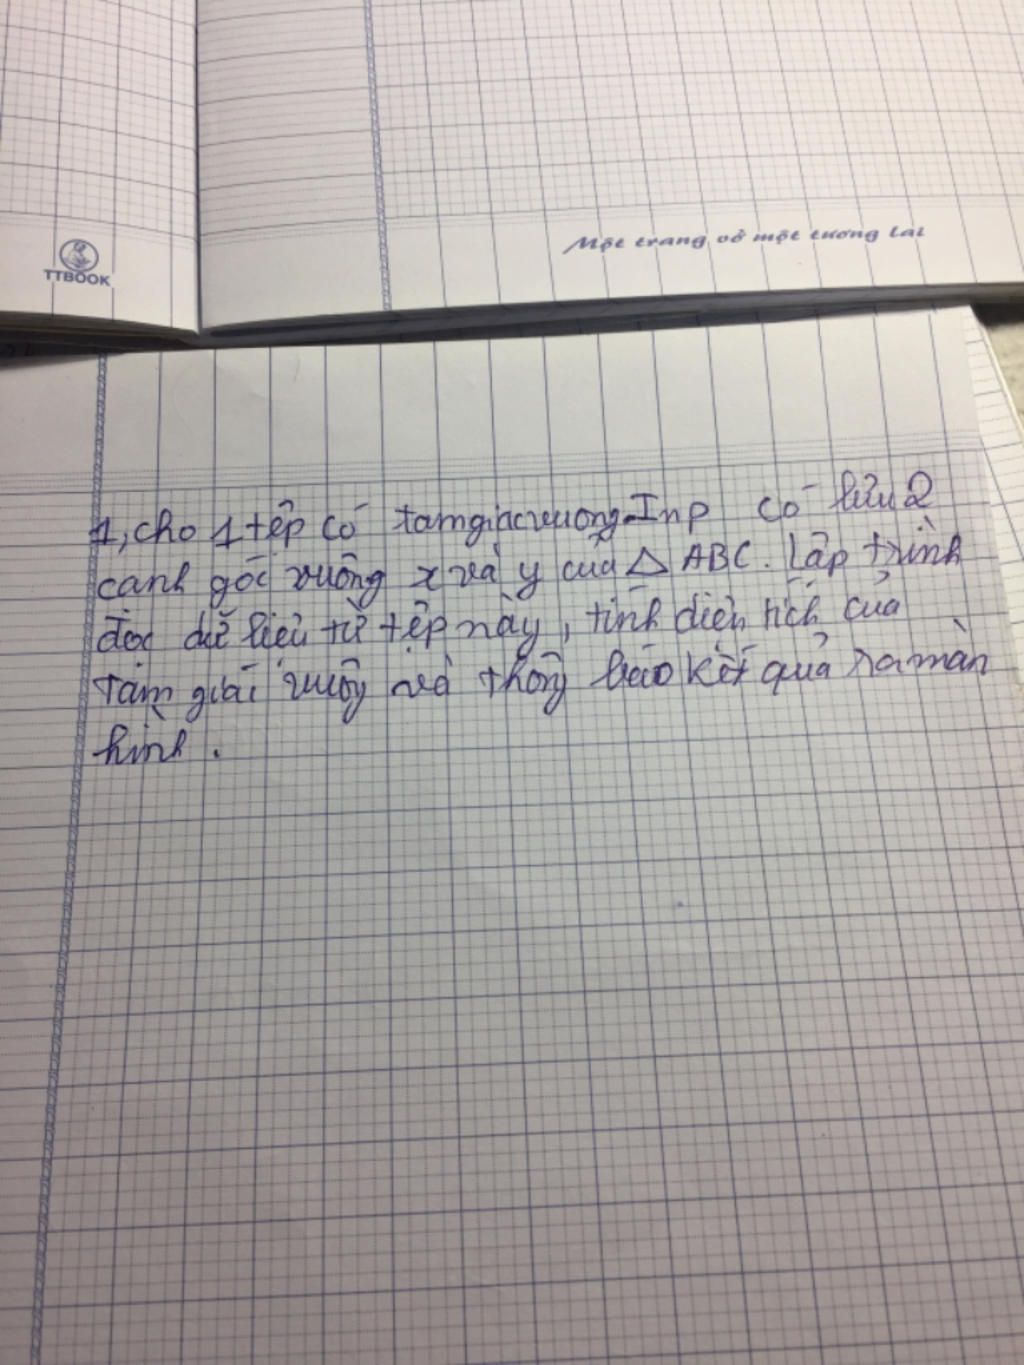 TTBOOK
Một trang vở một tương lai
1, cho 1 tệp có tamgiacvuong.Inp có lưu 2
cạnh góc vuông x và y của △ ABC. Lập trình
đọc dữ liệu từ tệp này, tính diện tích của
tam giác vuông và thông báo kết quả ra màn
hình.